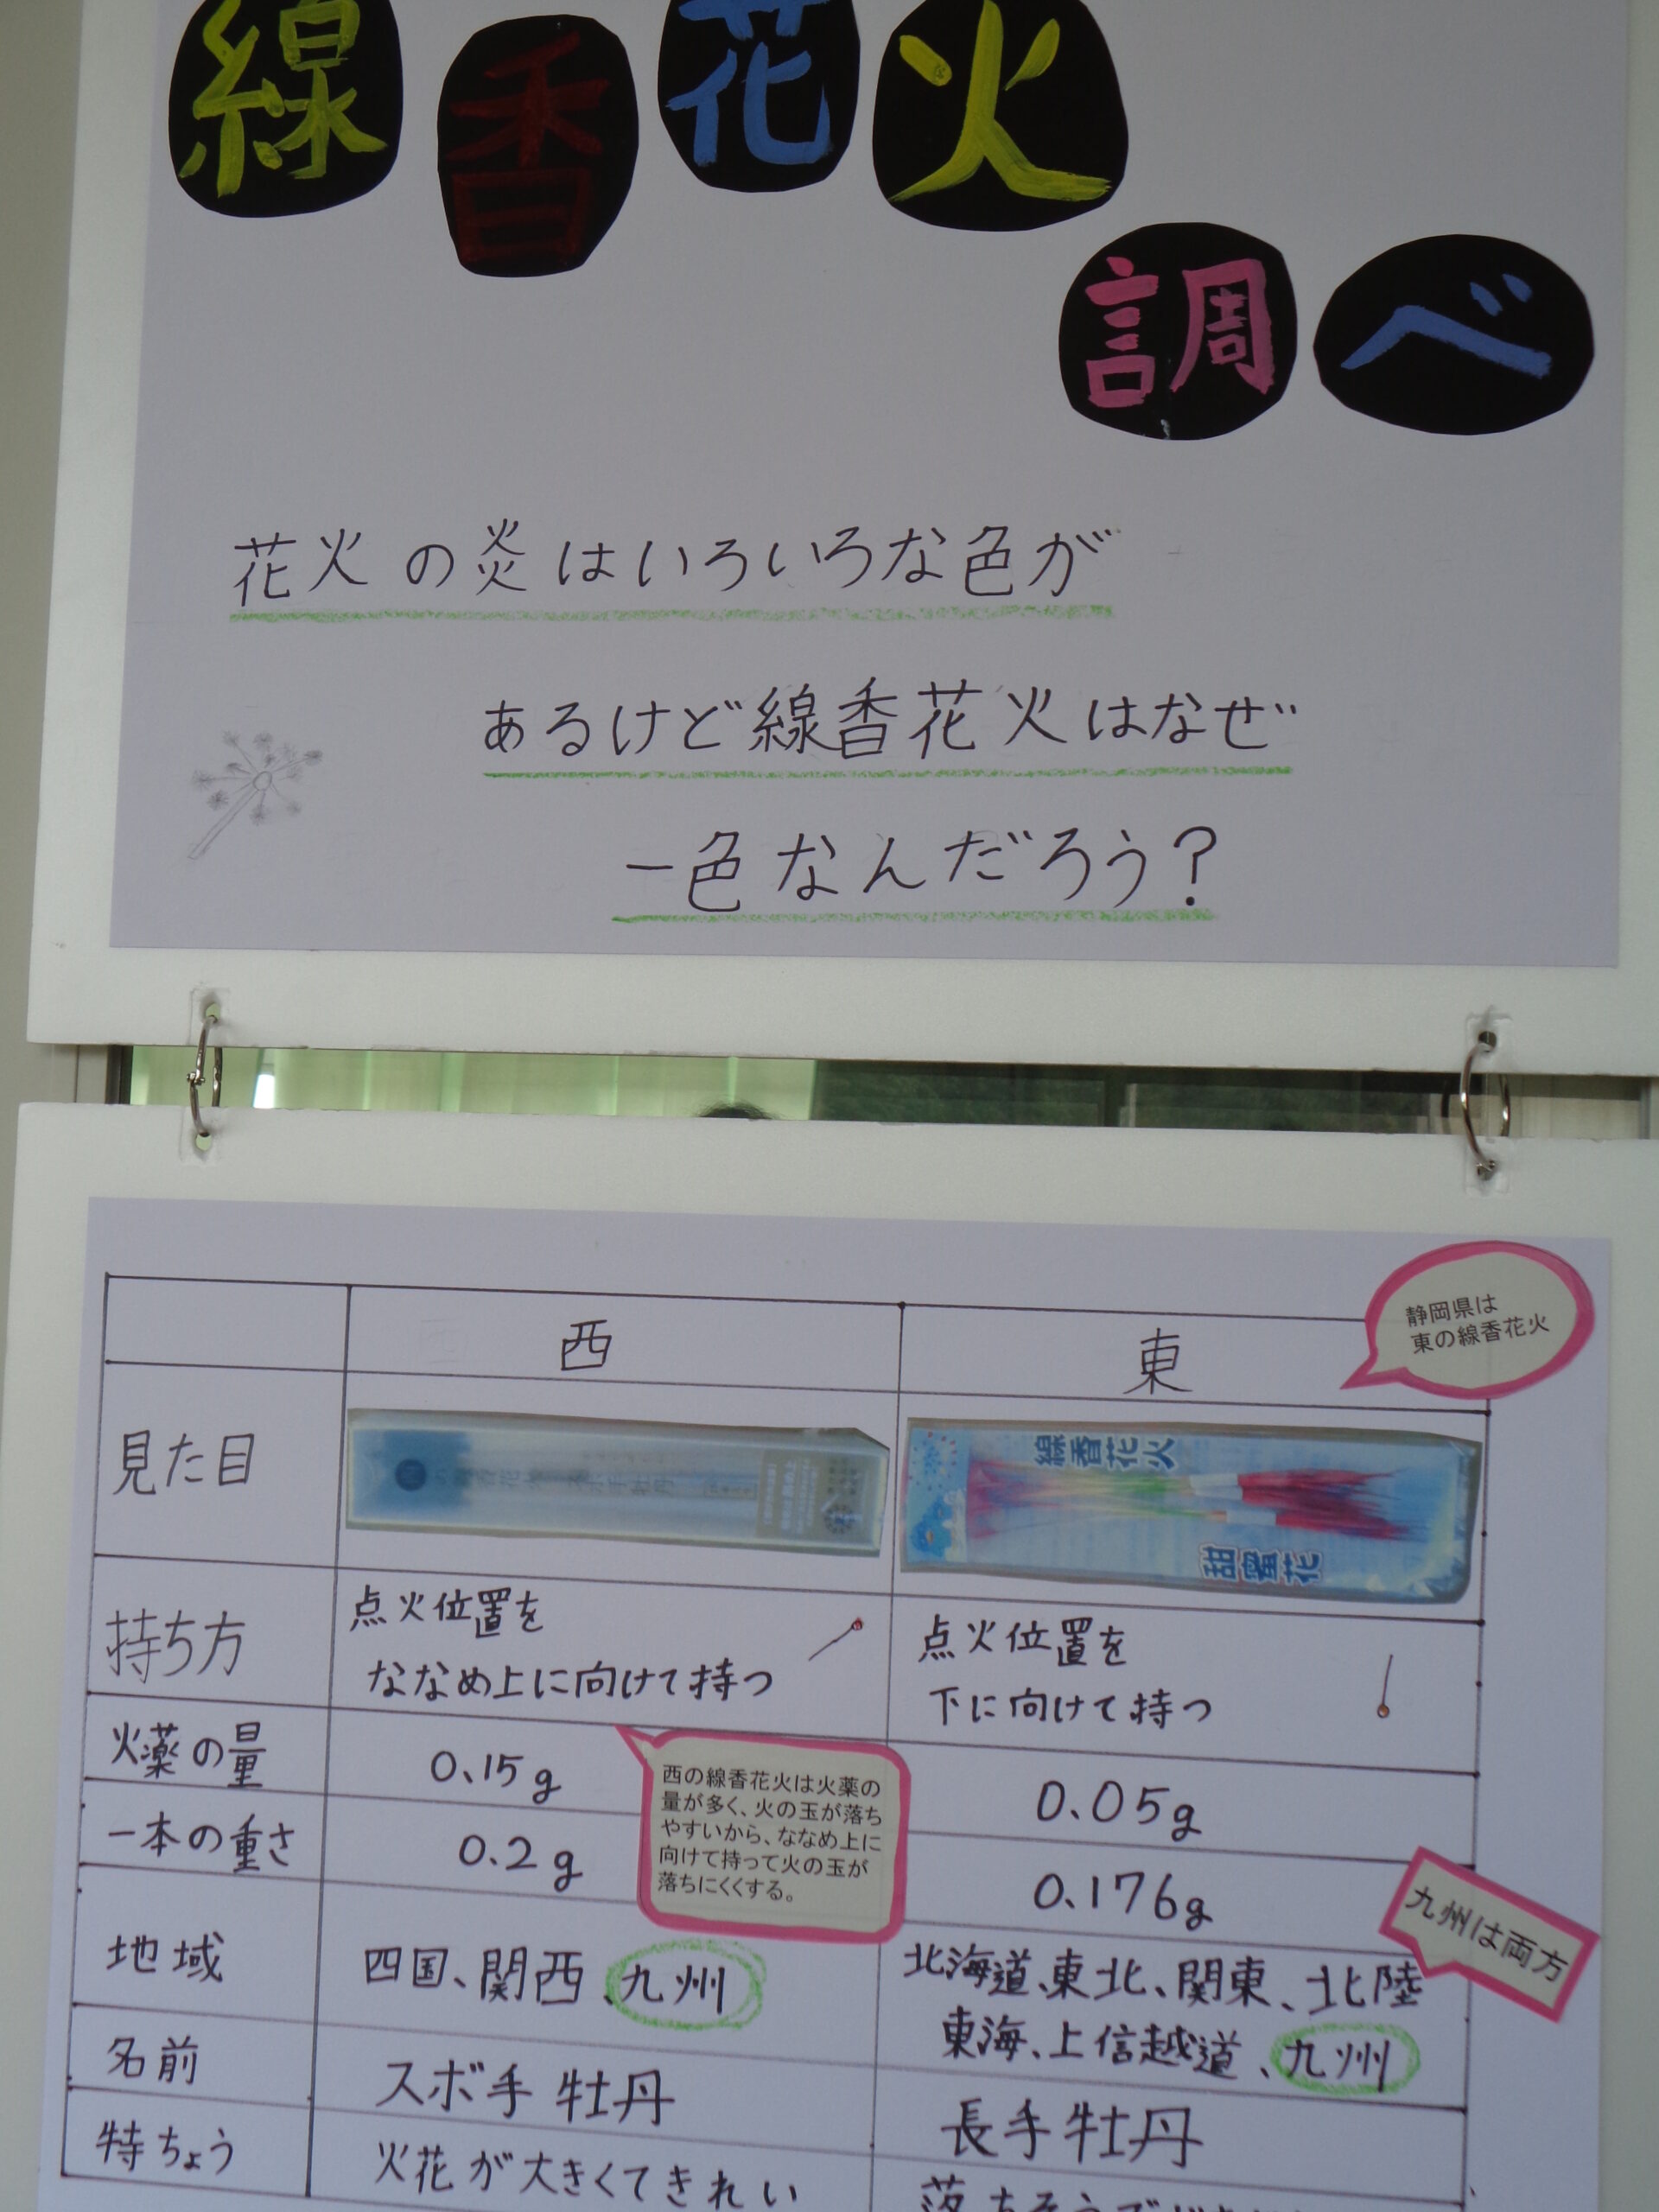 線香花火
調べ
花火の炎はいろいろな色が
あるけど線香花火はなぜ
一色なんだろう?
静岡県は
東の線香花火
西
東
見た目
線香花火
甜蜜花
持ち方
点火位置を
ななめ上に向けて持つ
点火位置を
下に向けて持つ
火薬の量
0.15g
0.05g
西の線香花火は火薬の
量が多く、火の玉が落ち
やすいから、ななめ上に
向けて持って火の玉が
落ちにくくする。
一本の重さ
0.2g
0.176g
九州は両方
地域
四国、関西、九州
北海道、東北、関東、北陸
東海、上信越道、九州
名前
スボ手牡丹
長手牡丹
特ちょう
火花が大きくてきれい